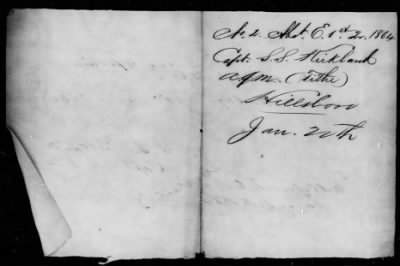 No 2. Abst. E. 1st Qr. 1864
Capt. S.S. Kirkland
AQM. (Tithe)
Hillsboro
Jan. 20th